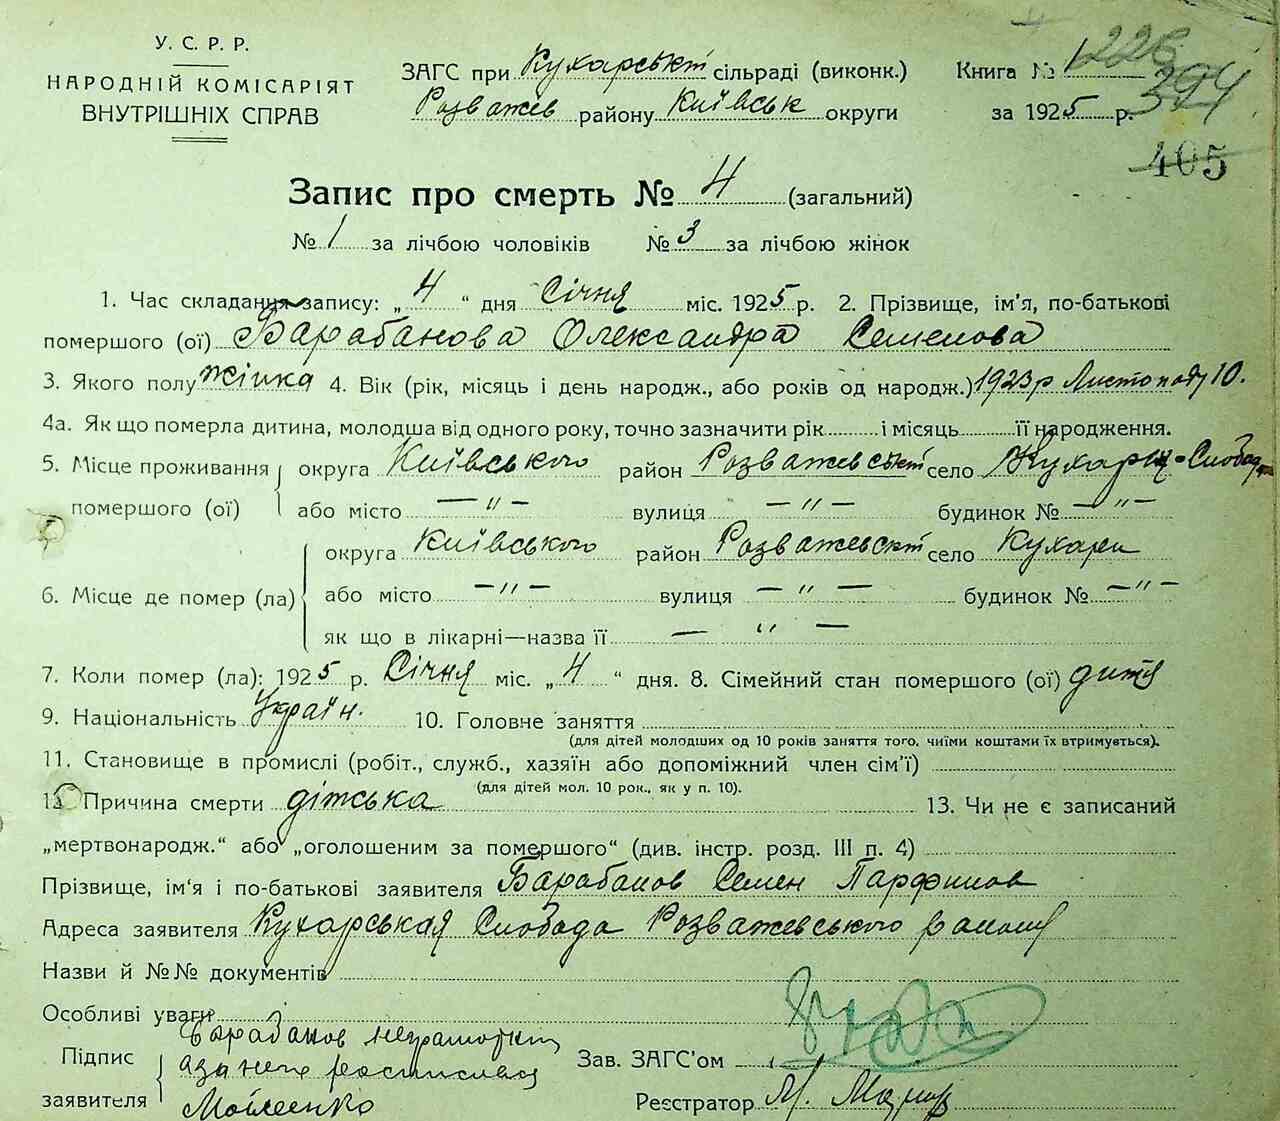 У. С. Р. Р.
НАРОДНІЙ КОМІСАРІЯТ
ВНУТРІШНІХ СПРАВ
ЗАГС при Кухарській сільраді (виконк.)
Розважев району Київськ округи
Книга № 1
за 1925 р.
226
394
405
Запис про смерть № 4 (загальний)
№ 1 за лічбою чоловіків № 3 за лічбою жінок
1. Час складання запису: „ 4 “ дня Січня міс. 1925 р. 2. Прізвище, ім'я, по-батькові
помершого (ої) Барабанова Олександра Семенова
3. Якого полу жінка 4. Вік (рік, місяць і день народж., або років од народж.) 1923 р Листопаду 10.
4а. Як що померла дитина, молодша від одного року, точно зазначити рік і місяць її народження.
5. Місце проживання округа Київського район Розважевськ село Кухары-Слобода
помершого (ої) або місто — " — вулиця — " — будинок № — " —
округа Київського район Розважевск село Кухари
6. Місце де помер (ла) або місто — " — вулиця — " — будинок № — " —
як що в лікарні—назва її — " —
7. Коли помер (ла): 1925 р. Січня міс. „ 4 “ дня. 8. Сімейний стан помершого (ої) дитя
9. Національність Україн. 10. Головне заняття
(для дітей молодших од 10 років заняття того, чиїми коштами їх втримується).
11. Становище в промислі (робіт., служб., хазяїн або допоміжний член сім'ї)
(для дітей мол. 10 рок., як у п. 10).
12 Причина смерти дітська 13. Чи не є записаний
„мертвонародж.“ або „оголошеним за помершого“ (див. інстр. розд. III п. 4)
Прізвище, ім'я і по-батькові заявителя Барабанов Семен Парфинов
Адреса заявителя Кухарськая Слобода Розважевського району
Назви й №№ документів
Особливі уваги
Підпис
заявителя
Барабанов неграмотни
а за него росписався
Мойсеенко
Зав. ЗАГС'ом
Реєстратор М.